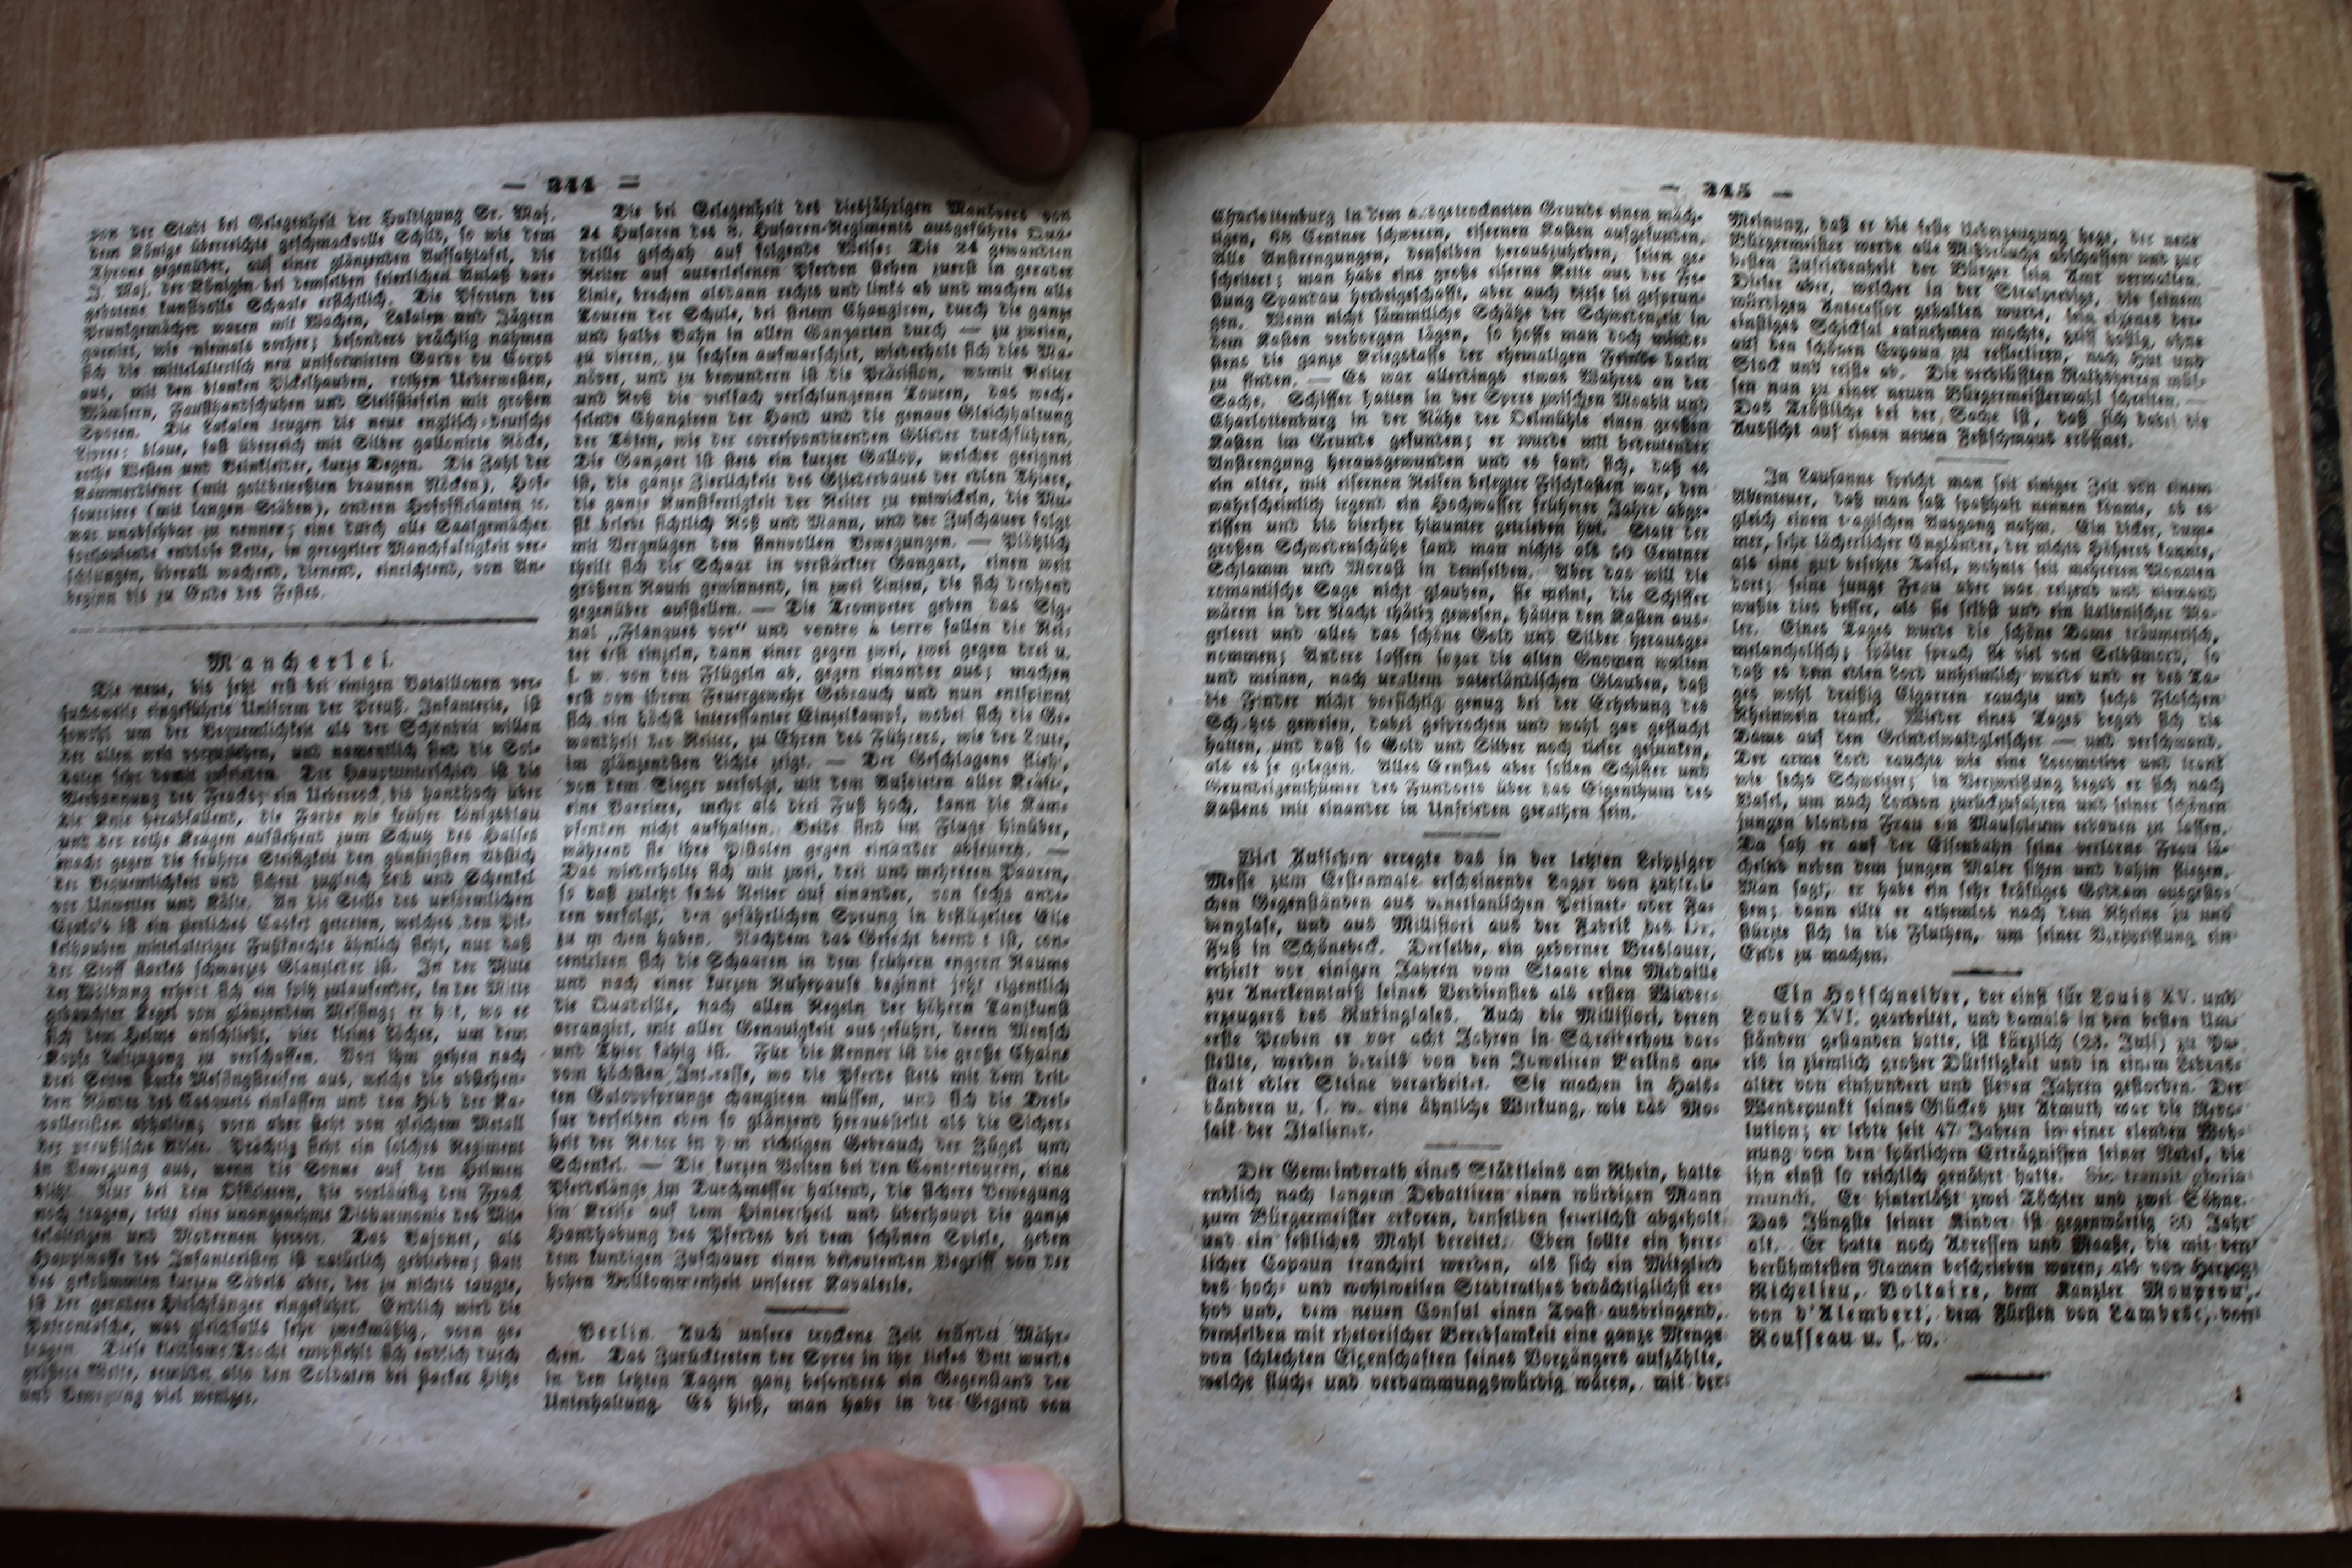 — 244 —
von der Stadt bei Gelegenheit der Huldigung Sr. Maj.
dem Könige überreichte geschmackvolle Schild, so wie dem
Throne gegenüber, auf einer glänzenden Aufsatztafel, die
J. Maj. der Königin bei demselben feierlichen Anlaß dar-
gebotene kunstvolle Schaale ersichtlich. Die Pforten der
Prunkgemächer waren mit Wachen, Lakaien und Jägern
garnirt, wie niemals vorher; besonders prächtig nahmen
sich die mittelalterisch neu uniformirten Garde du Corps
aus, mit den blanken Pickelhauben, rothen Ueberwesten,
Wämsern, Fausthandschuhen und Steifstiefeln mit großen
Sporen. Die Lakaien trugen die neue englisch-deutsche
Livree: blaue, fast überreich mit Silber gallonirte Röcke,
rothe Westen und Beinkleider, kurze Degen. Die Zahl der
Kammerdiener (mit goldbetreßten braunen Röcken), Hof-
fouriere (mit langen Stäben), andern Hofofficianten ꝛc.
war unabsehbar zu nennen; eine durch alle Saalgemächer
fortlaufende endlose Kette, in geregelter Manchfaltigkeit ver-
schlungen, überall wachend, dienend, einrichtend, von An-
beginn bis zu Ende des Festes.
Mancherlei.
Die neue, bis jetzt erst bei einigen Bataillonen ver-
suchsweise eingeführte Uniform der Preuß. Infanterie, ist
sowohl um der Bequemlichkeit als der Schönheit willen
der alten weit vorzuziehen, und namentlich sind die Sol-
daten sehr damit zufrieden. Der Hauptunterschied ist die
Verbannung des Fracks; ein Ueberrock bis handhoch über
die Knie herabfallend, die Farbe wie früher königsblau
und der rothe Kragen aufstehend zum Schutz des Halses
macht gegen die frühere Steifigkeit den günstigsten Abstich
der Bequemlichkeit und sichert zugleich Leib und Schenkel
vor Unwetter und Kälte. An die Stelle des unförmlichen
Czako's ist ein zierliches Casket getreten, welches den Pik-
kelhauben mittelaltriger Fußknechte ähnlich sieht, nur daß
der Stoff starkes schwarzes Glanzleder ist. In der Mitte
der Wölbung erhebt sich ein spitz zulaufender, in der Mitte
gebauchter Kegel von glänzendem Messing; er hat, wo er
sich dem Helme anschließt, vier kleine Löcher, um dem
Kopfe Luftzugang zu verschaffen. Von ihm gehen nach
drei Seiten starke Messingstreifen aus, welche die abstehen-
den Ränder des Casquets einfassen und den Hieb der Ka-
valleristen abhalten; vorn aber steht von gleichem Metall
der preußische Adler. Prächtig sieht ein solches Regiment
in Bewegung aus, wenn die Sonne auf den Helmen
blitzt. Nur bei den Offizieren, die vorläufig den Frack
noch tragen, tritt eine unangenehme Disharmonie des Mit-
telaltrigen und Modernen hervor. Das Bajonet, als
Hauptwaffe des Infanteristen ist natürlich geblieben; statt
des gekrümmten kurzen Säbels aber, der zu nichts taugte,
ist der geradere Hirschfänger eingeführt. Endlich wird die
Patrontasche, was gleichfalls sehr zweckmäßig, vorn ge-
tragen. Diese kleidsame Tracht empfiehlt sich endlich durch
größere Weite, ermüdet also den Soldaten bei starker Hitze
und Bewegung viel weniger.
Die bei Gelegenheit des diesjährigen Manövers von
24 Husaren des 3. Husaren-Regiments ausgeführte Qua-
drille geschah auf folgende Weise: Die 24 gewandten
Reiter auf auserlesenen Pferden stehen zuerst in gerader
Linie, brechen alsdann rechts und links ab und machen alle
Touren der Schule, bei stetem Changiren, durch die ganze
und halbe Bahn in allen Gangarten durch — zu zweien,
zu vieren, zu sechsen aufmarschirt, wiederholt sich dies Ma-
növer, und zu bewundern ist die Präcision, womit Reiter
und Roß die vielfach verschlungenen Touren, das wech-
selnde Changiren der Hand und die genaue Gleichhaltung
der Töten, wie der correspondirenden Glieder durchführen.
Die Gangart ist stets ein kurzer Gallop, welcher geeignet
ist, die ganze Zierlichkeit des Gliederbaues der edlen Thiere,
die ganze Kunstfertigkeit der Reiter zu entwickeln, die Mu-
sik belebt sichtlich Roß und Mann, und der Zuschauer folgt
mit Vergnügen den sinnvollen Bewegungen. — Plötzlich
theilt sich die Schaar in verstärkter Gangart, einen weit
größern Raum gewinnend, in zwei Linien, die sich drohend
gegenüber aufstellen. — Die Trompeter geben das Sig-
nal „Flanqueur vor“ und ventre à terre fallen die Rei-
ter erst einzeln, dann einer gegen zwei, zwei gegen drei u.
s. w. von den Flügeln ab, gegen einander aus; machen
erst von ihrem Feuergewehr Gebrauch und nun entspinnt
sich ein höchst interessanter Einzelkampf, wobei sich die Ge-
wandtheit der Reiter, zu Ehren des Führers, wie der Leute,
im glänzendsten Lichte zeigt. — Der Geschlagene flieht,
von dem Sieger verfolgt, mit dem Aufbieten aller Kräfte,
eine Barriere, mehr als drei Fuß hoch, kann die Käm-
pfenden nicht aufhalten. Beide sind im Fluge hinüber,
während sie ihre Pistolen gegen einander abfeuern. —
Das wiederholte sich mit zwei, drei und mehreren Paaren,
so daß zuletzt sechs Reiter auf einander, von sechs ande-
ren verfolgt, den gefährlichen Sprung in beflügelter Eile
zu machen haben. Nachdem das Gefecht beendet ist, con-
centriren sich die Schaaren in dem frühern engern Raume
und nach einer kurzen Ruhepause beginnt jetzt eigentlich
die Quadrille, nach allen Regeln der höhern Tanzkunst
arrangirt, mit aller Genauigkeit ausgeführt, deren Mensch
und Thier fähig ist. Für die Kenner ist die große Chaine
vom höchsten Interesse, wo die Pferde stets mit dem drit-
ten Galoppsprunge changiren müssen, und sich die Dres-
sur derselben eben so glänzend herausstellt als die Sicher-
heit der Reiter in dem richtigen Gebrauch der Zügel und
Schenkel. — Die kurzen Volten bei den Contretouren, eine
Pferdelänge im Durchmesser haltend, die sichere Bewegung
im Kreise auf dem Hintertheil und überhaupt die ganze
Handhabung des Pferdes bei dem schönen Spiele, geben
dem kundigen Zuschauer einen bedeutenden Begriff von der
hohen Vollkommenheit unserer Kavalerie.
Berlin. Auch unsere trockene Zeit erfindet Mähr-
chen. Das Zurücktreten der Spree in ihr tiefes Bett wurde
in den letzten Tagen ganz besonders ein Gegenstand der
Unterhaltung. Es hieß, man habe in der Gegend von
— 245 —
Charlottenburg in dem ausgetrockneten Grunde einen mäch-
tigen, 68 Centner schweren, eisernen Kasten aufgefunden.
Alle Anstrengungen, denselben herauszuheben, seien ge-
scheitert; man habe eine große eiserne Kette aus der Fe-
stung Spandau herbeigeschafft, aber auch diese sei gesprun-
gen. Wenn nicht sämmtliche Schätze der Schwedenzeit in
dem Kasten verborgen lägen, so hoffe man doch minde-
stens die ganze Kriegskasse der ehemaligen Feinde darin
zu finden. — Es war allerdings etwas Wahres an der
Sache. Schiffer hatten in der Spree zwischen Moabit und
Charlottenburg in der Nähe der Oelmühle einen großen
Kasten im Grunde gefunden; er wurde mit bedeutender
Anstrengung herausgewunden und es fand sich, daß es
ein alter, mit eisernen Reifen belegter Fischkasten war, den
wahrscheinlich irgend ein Hochwasser früherer Jahre abge-
rissen und bis hierher hinunter getrieben hat. Statt der
großen Schwedenschätze fand man nichts als 50 Centner
Schlamm und Morast in demselben. Aber das will die
romantische Sage nicht glauben, sie meint, die Schiffer
wären in der Nacht thätig gewesen, hätten den Kasten aus-
geleert und alles das schöne Gold und Silber herausge-
nommen; Andere lassen sogar die alten Gnomen walten
und meinen, nach uraltem vaterländischen Glauben, daß
die Finder nicht vorsichtig genug bei der Erhebung des
Schatzes gewesen, dabei gesprochen und wohl gar geflucht
hatten, und daß so Gold und Silber noch tiefer gesunken,
als es je gelegen. Alles Ernstes aber sollen Schiffer und
Grundeigenthümer des Fundorts über das Eigenthum des
Kastens mit einander in Unfrieden gerathen sein.
Viel Aufsehen erregte das in der letzten Leipziger
Messe zum Erstenmale erscheinende Lager von zahlrei-
chen Gegenständen aus venetianischen Petinet- oder Fa-
denglase, und aus Millifiori aus der Fabrik des Dr.
Fuß in Schönebeck. Derselbe, ein geborner Breslauer,
erhielt vor einigen Jahren vom Staate eine Medaille
zur Anerkenntniß seines Verdienstes als ersten Wieder-
erzeugers des Rubinglases. Auch die Millifiori, deren
erste Proben er vor acht Jahren in Schreiberhau dar-
stellte, werden bereits von den Juwelieren Berlins an-
statt edler Steine verarbeitet. Sie machen in Hals-
bändern u. s. w. eine ähnliche Wirkung, wie das Mo-
saik der Italiener.
Der Gemeinderath eines Städtleins am Rhein, hatte
endlich nach langem Debattiren einen würdigen Mann
zum Bürgermeister erkoren, denselben feierlichst abgeholt
und ein festliches Mahl bereitet. Eben sollte ein herr-
licher Capaun tranchirt werden, als sich ein Mitglied
des hoch- und wohlweisen Stadtrathes bedächtiglichst er-
hob und, dem neuen Consul einen Toast ausbringend,
demselben mit rhetorischer Beredsamkeit eine ganze Menge
von schlechten Eigenschaften seines Vorgängers aufzählte,
welche fluch- und verdammungswürdig wären, mit der
Meinung, daß er die feste Ueberzeugung hege, der neue
Bürgermeister werde alle Mißbräuche abschaffen und zur
besten Zufriedenheit der Bürger sein Amt verwalten.
Dieser aber, welcher in der Strafpredigt, die seinem
würdigen Antecessor gehalten wurde, sein eigenes der-
einstiges Schicksal entnehmen mochte, griff hastig, ohne
auf den schönen Capaun zu reflectiren, nach Hut und
Stock und reiste ab. Die verblüfften Rathsherren müs-
sen nun zu einer neuen Bürgermeisterwahl schreiten. —
Das Tröstliche bei der Sache ist, daß sich dabei die
Aussicht auf einen neuen Festschmaus eröffnet.
In Lausanne spricht man seit einiger Zeit von einem
Abenteuer, daß man fast spaßhaft nennen könnte, ob es
gleich einen tragischen Ausgang nahm. Ein dicker, dum-
mer, sehr lächerlicher Engländer, der nichts Höheres kannte,
als eine gut besetzte Tafel, wohnte seit mehreren Monaten
dort; seine junge Frau aber war reizend und niemand
wußte dies besser, als sie selbst und ein italienischer Ma-
ler. Eines Tages wurde die schöne Dame träumerisch,
melancholisch; später sprach sie viel von Selbstmord, so
daß es dem edlen Lord unheimlich wurde und er des Ta-
ges wohl dreißig Cigarren rauchte und sechs Flaschen
Rheinwein trank. Wieder eines Tages begab sich die
Dame auf den Grindelwaldgletscher — und verschwand.
Der arme Lord rauchte wie eine Locomotive und trank
wie sechs Schweizer; in Verzweiflung begab er sich nach
Basel, um nach London zurückzufahren und seiner schönen
jungen blonden Frau ein Mausoleum erbauen zu lassen.
Da sah er auf der Eisenbahn seine verlorne Frau lä-
chelnd neben dem jungen Maler sitzen und dahin fliegen.
Man sagt, er habe ein sehr kräftiges Goddam ausgesto-
ßen; dann eilte er athemlos nach dem Rheine zu und
stürzte sich in die Fluthen, um seiner Verzweiflung ein
Ende zu machen.
Ein Hofschneider, der einst für Louis XV. und
Louis XVI. gearbeitet, und damals in den besten Um-
ständen gestanden hatte, ist kürzlich (23. Juli) zu Pa-
ris in ziemlich großer Dürftigkeit und in einem Lebens-
alter von einhundert und sieben Jahren gestorben. Der
Wendepunkt seines Glückes zur Armuth war die Revo-
lution; er lebte seit 47 Jahren in einer elenden Woh-
nung von den spärlichen Erträgnissen seiner Nadel, die
ihn einst so reichlich genährt hatte. Sic transit gloria
mundi. Er hinterläßt zwei Töchter und zwei Söhne.
Das Jüngste seiner Kinder ist gegenwärtig 80 Jahr
alt. Er hatte noch Adressen und Maaße, die mit den
berühmtesten Namen beschrieben waren, als von Herzog
Richelieu, Voltaire, dem Kanzler Moupeou,
von d'Alembert, dem Fürsten von Lambesc, von
Rousseau u. s. w.